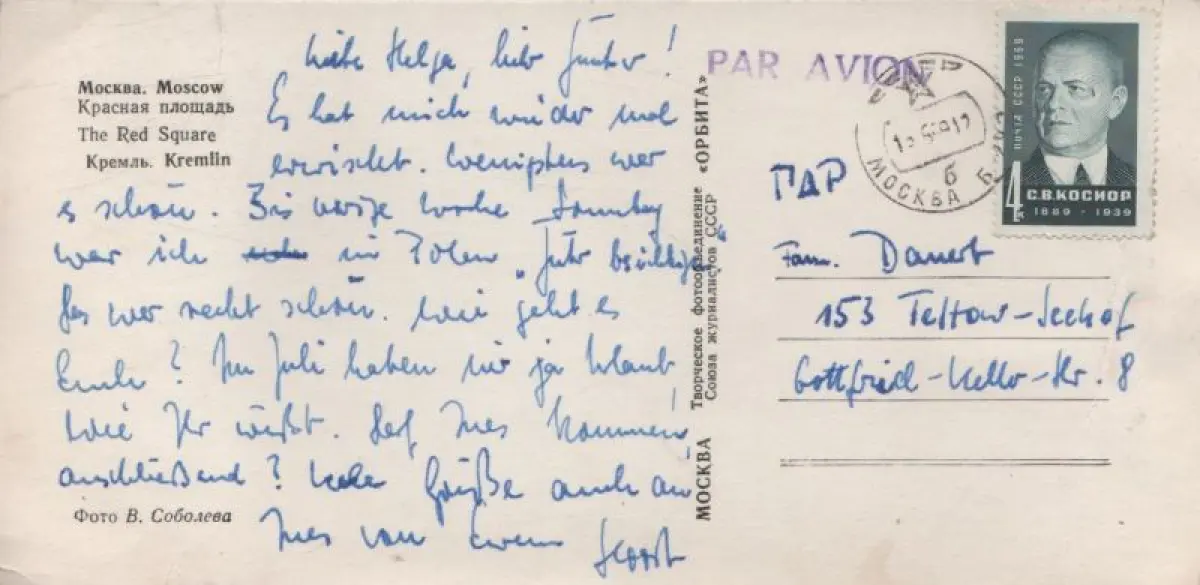 Москва. Moscow
Красная площадь
The Red Square
Кремль. Kremlin
Liebe Helga, lieber Günter!
Es hat mich wieder mal
erwischt. Wenigstens war
es schön. Bis vorige Woche Sonntag
war ich in Polen
Es war recht schön. Wie geht es
Euch? Im Juli haben wir ja Urlaub,
wie Ihr wißt. Darf Ines kommen,
anschließend? Viele Grüße auch an
Ines von Eurem Horst
Фото В. Соболева
МОСКВА Творческое фотообъединение «ОРБИТА»
Союза журналистов СССР
PAR AVION
МОСКВА
ПОЧТА СССР 1969
4к
С.В.КОСИОР
1889 · 1939
ГДР
Fam. Danert
153 Teltow-Seehof
Gottfried-Keller-Str. 8